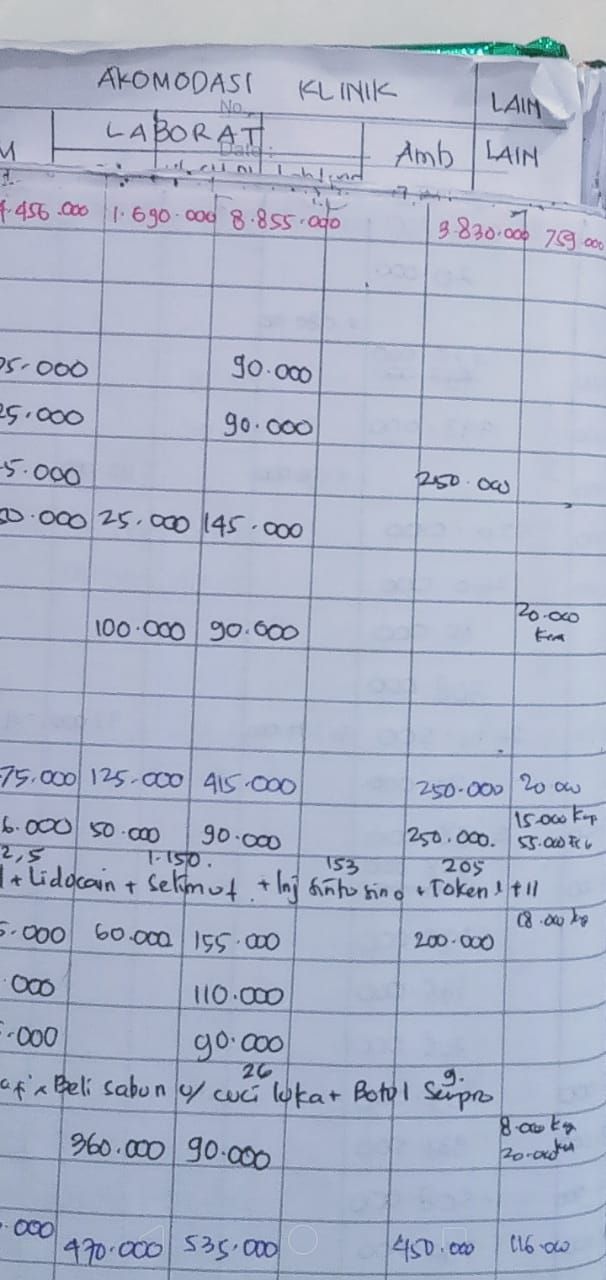 AKOMODASI KLINIK LAIN
No.
LABORAT Amb LAIN
Date :
.456.000 1.690.000 8.855.000 3.830.000 759.000
5.000 90.000
25.000 90.000
5.000 250.000
50.000 25.000 145.000
100.000 90.000 20.000
75.000 125.000 415.000 250.000 20.000
6.000 50.000 90.000 250.000. 15.000
55.000
2,5 1.150. 153 205
+ Lidocain + Selimut + Inj sinto sing + Token
5.000 60.000 155.000 200.000 18.000
.000 110.000
.000 90.000
26 9.
Beli sabun u/ cuci luka + Botol
8.000
360.000 90.000 20.000
.000 470.000 535.000 450.000 116.000